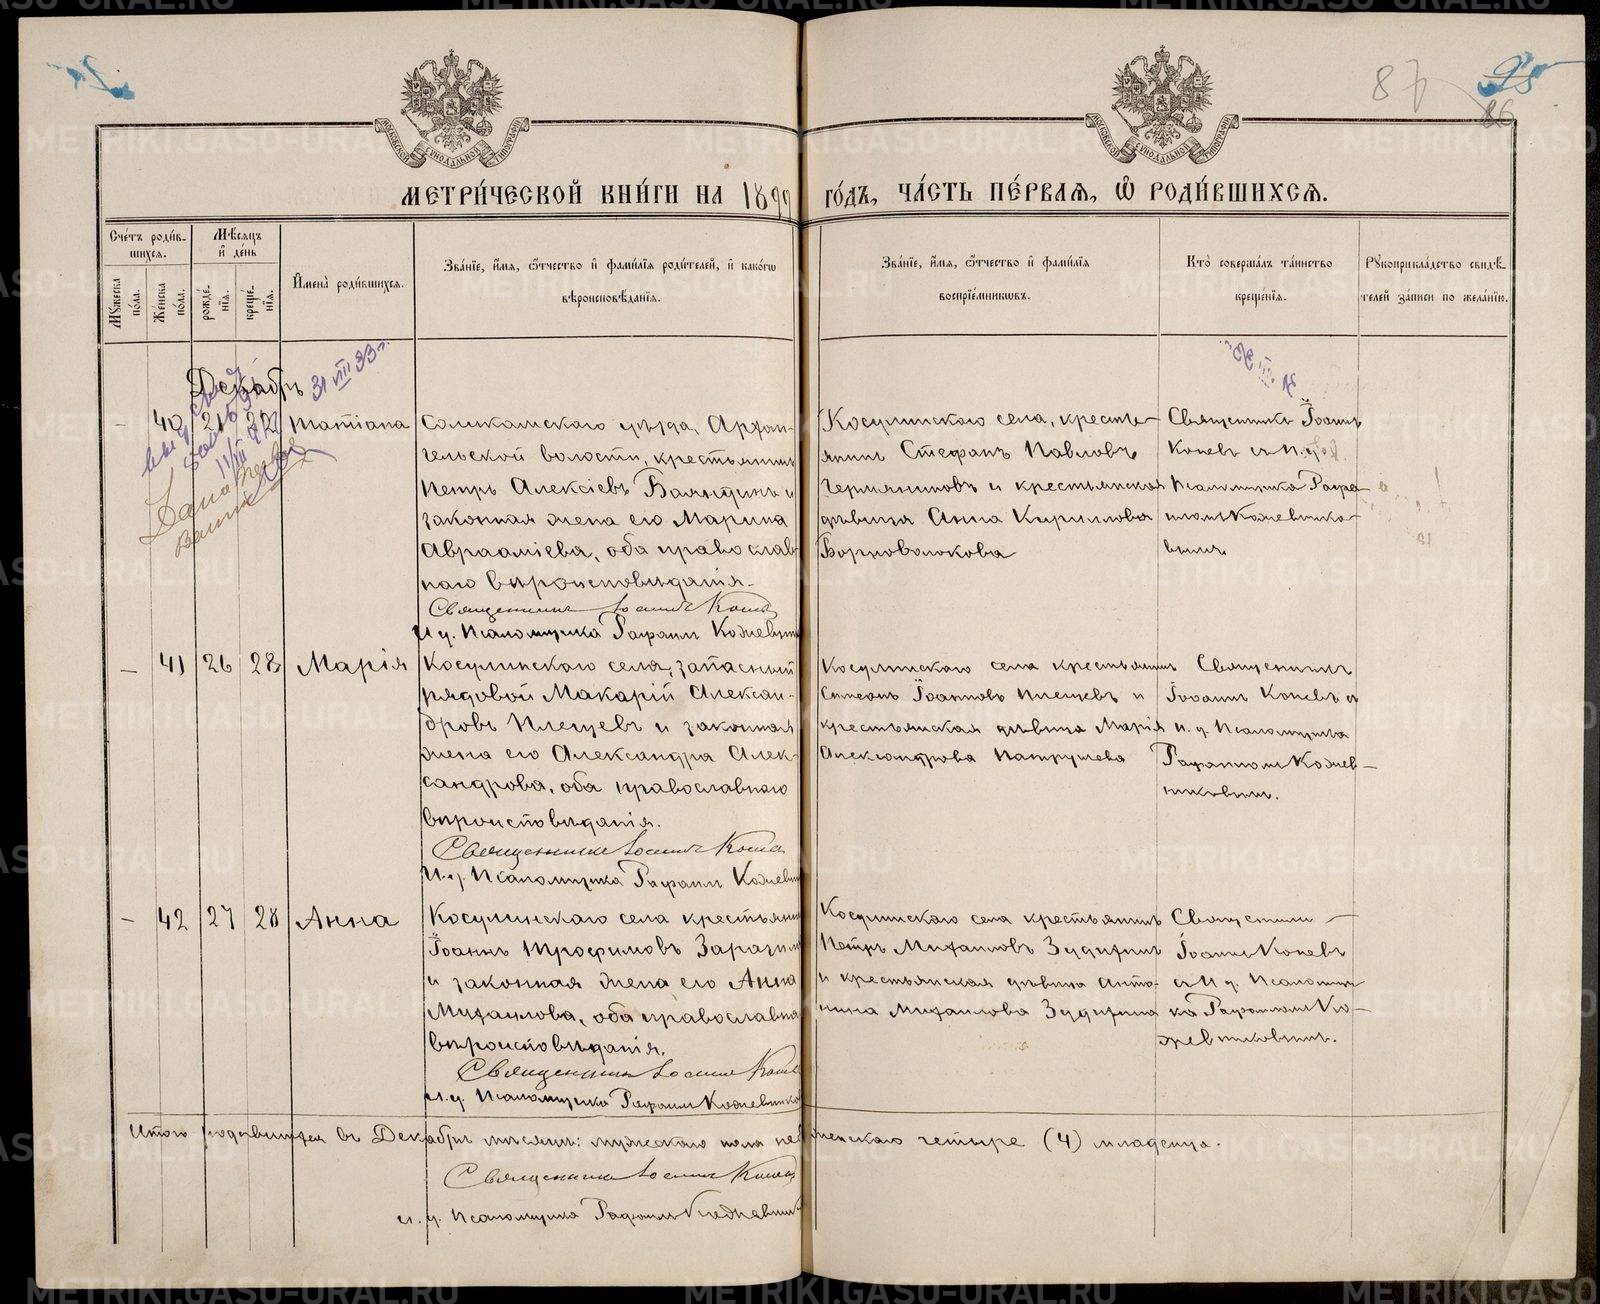 87
95
86
МОСКОВСКОЙ СѴНОДАЛЬНОЙ ТИПОГРАФІИ
МОСКОВСКОЙ СѴНОДАЛЬНОЙ ТИПОГРАФІИ
МЕТРИ́ЧЕСКОЙ КНИ́ГИ НА 1899 ГО́ДЪ, ЧА́СТЬ ПЕ́РВАѦ, Ѽ РОДИ́ВШИХСѦ.
Сче́тъ роди́в-
шихсѧ.
Мѣ́сѧцъ
и҆ де́нь
Мꙋ́жеска по́ла.
Же́нска по́ла.
рожде́нїѧ.
креще́нїѧ.
И҆мена̀ роди́вшихсѧ.
Зва́нїе, и҆́мѧ, ѻ҆́тчество и҆ фами́лїѧ роди́телей, и҆ како́гѡ
вѣроисповѣ́данїѧ.
Зва́нїе, и҆́мѧ, ѻ҆́тчество и҆ фами́лїѧ
воспрїе́мникѡвъ.
Кто̀ соверша́лъ та́инство
креще́нїѧ.
Рꙋкоприкла́дство свидѣ́-
телей за́писи по жела́нїю.
Декабрь
31 VIII 33 г.
- 40 21 22 Татіана
Соликамскаго уѣзда, Архан-
гельской волости, крестьянинъ
Петръ Алексіевъ Баяндинъ и
законная жена его Марина
Авраамiева, оба православ
наго вѣроисповѣданія.
Священникъ Іоаннъ Коневъ
И. д. Псаломщика Рафаилъ Кожевник
Косулинскаго села, кресть-
янинъ Стефанъ Павловъ
Черняниновъ и крестьянская
дѣвица Анна Кириллова
Борноволокова
Священникъ Іоаннъ
Коневъ съ И. д.
Псаломщика Рафа-
иломъ Кожевнико-
вымъ
- 41 26 28 Марія
Косулинскаго села, запасный
рядовой Макарій Алексан-
дровъ Плещевъ и законная
жена его Александра Алек-
сандрова, оба православнаго
вѣроисповѣданія.
Священникъ Іоаннъ Коневъ
И. д. Псаломщика Рафаилъ Кожевни
Косулинскаго села крестьянинъ
Симеонъ Іоанновъ Плещевъ и
крестьянская дѣвица Марія
Александрова Патрушева
Священникъ
Іоаннъ Коневъ съ
и. д. Псаломщика
Рафаиломъ Кожев-
никовымъ.
- 42 27 28 Анна
Косулинскаго села крестьянин
Іоаннъ Трофимовъ
и законная жена его Анна
Михаилова, оба православна
вѣроисповѣданія.
Священникъ Іоаннъ Коневъ
И. д. Псаломщика Рафаилъ Кожевнико
Косулинскаго села крестьянинъ
Петръ Михаиловъ Зудихинъ
и крестьянская дѣвица Анто-
нина Михаилова Зудихина
Священникъ
Іоаннъ Коневъ
съ И. д. Псаломщи
ка Рафаиломъ Ко-
жевниковымъ.
Итого родившихся въ Декабрѣ мѣсяцѣ: мужескаго пола нѣтъ женскаго четыре (4) младенца.
Священникъ Іоаннъ Коневъ
и. д. Псаломщика Рафаилъ Кожевник
METRIKI.GASO-URAL.RU